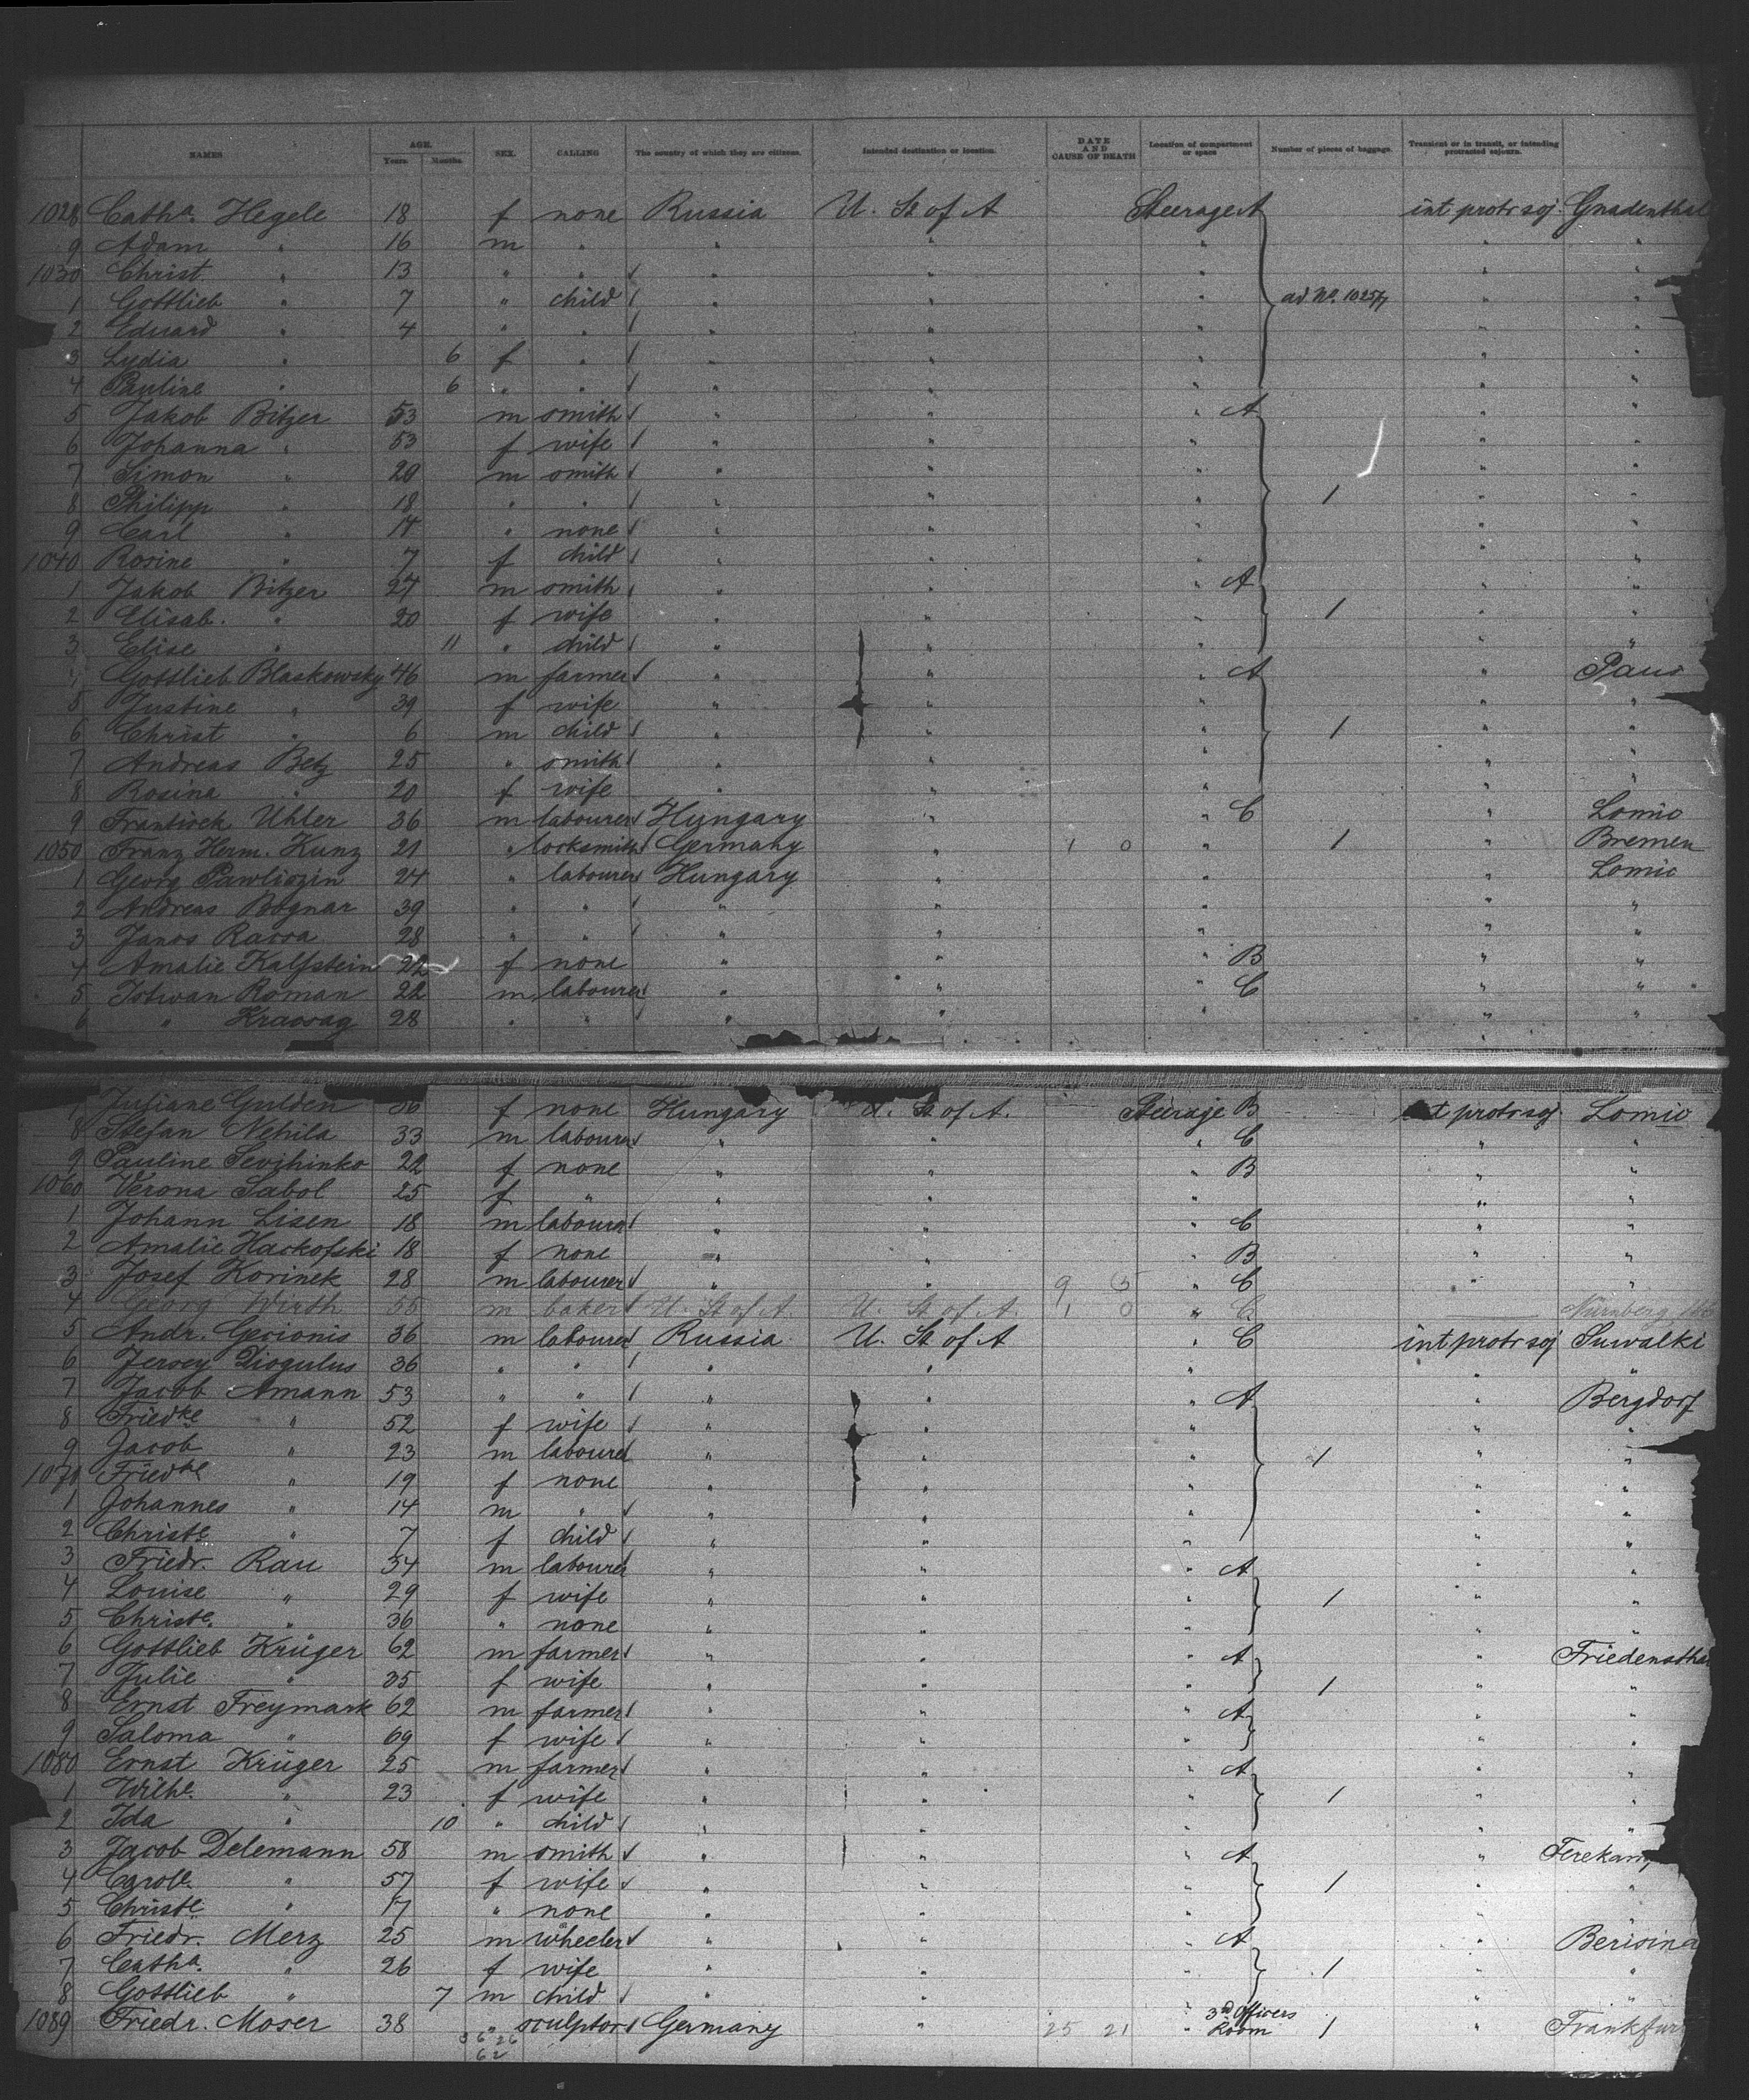 NAMES AGE. Years. Months SEX. CALLING The country of which they are citizens. Intended destination or location. DATE AND CAUSE OF DEATH Location of compartment or space Number of pieces of baggage. Transient or in transit, or intending protracted sojourn.
1028 Cathe. Hegele 18 f none Russia U. St of A Steerage A int protr soj. Gnadenthal
9 Adam " 16 m " " " " " "
1030 Christ. " 13 " " " " " " "
1 Gottlieb " 7 " child " " " ad No. 1025/7 " "
2 Eduard " 4 " " " " " " "
3 Lydia " 6 f " " " " " "
4 Pauline " 6 " " " " " " "
5 Jakob Bitzer 53 m smith " " " A " "
6 Johanna " 53 f wife " " " " "
7 Simon " 20 m smith " " " " "
8 Philipp " 18 " " " " " 1 " "
9 Carl " 14 " none " " " " "
1040 Rosine " 7 f child " " " " "
1 Jakob Bitzer 27 m smith " " " A " "
2 Elisab. " 20 f wife " " " 1 " "
3 Elise " 11 " child " " " " "
Gottlieb Blaskowsky 46 m farmer " " " A "
5 Justine " 39 f wife " " " " "
6 Christ " 6 m child " " " 1 " "
7 Andreas Betz 25 " smith " " " " "
8 Rosina " 20 f wife " " " " "
9 Frantisek Uhler 36 m labourer Hungary " " C " Lomic
1050 Franz Herm. Kunz 21 " locksmith Germany " 1 0 " 1 " Bremen
1 Georg Pawliszin 24 " labourer Hungary " " " Lomic
2 Andreas Bognar 39 " " " " " " "
3 Janos Racsa 28 " " " " " " "
4 Amalie Kalfstein 22 f none " " " B " "
5 Istwan Roman 22 m labourer " " " C " "
6 " Kracsag 28 " " " " " " "
7 Juliane Gulden 36 f none Hungary U. St of A. Steerage B int protr soj Lomic
8 Stefan Nehila 33 m labourer " " " C " "
9 Pauline Sevihinko 22 f none " " " B " "
1060 Verona Sabol 25 f " " " " " "
1 Johann Lisen 18 m labourer " " " C " "
2 Amalie Hackofski 18 f none " " " B " "
3 Josef Korinek 28 m labourer " " 9 5 " C " "
4 Georg Wirth 55 m baker U. St of A. U. St of A. 1 0 " C Nürnberg
5 Andr. Gecionis 36 m labourer Russia. U. St of A " C int protr soj Suwalki
6 Jersey Diogulus 36 " " " " " " "
7 Jacob Amann 53 " " " " " A " Bergdorf
8 Friedke " 52 f wife " " " " "
9 Jacob " 23 m labourer " " " 1 " "
1070 Friedke " 19 f none " " " " "
1 Johannes " 14 m " " " " " "
2 Christe " 7 f child " " " " "
3 Friedr. Rau 34 m labourer " " " A " "
4 Louise " 29 f wife " " " 1 " "
5 Christe. " 36 " none " " " " "
6 Gottlieb Krüger 62 m farmer " " " A " Friedensthal
7 Julie " 35 f wife " " " 1 " "
8 Ernst Freymark 62 m farmer " " " A " "
9 Saloma " 69 f wife " " " " "
1080 Ernst Krüger 25 m farmer " " " A " "
1 Wilhe. " 23 f wife " " " 1 " "
2 Ida " 10 " child " " " " "
3 Jacob Delemann 58 m smith " " " A "
4 Carole. " 57 f wife " " " 1 " "
5 Christe " 17 " none " " " " "
6 Friedr. Merz 25 m wheeler " " " A " Berisina
7 Cathe. " 26 f wife " " " 1 " "
8 Gottlieb " 7 m child " " " " "
1089 Friedr. Moser 38 " sculptor Germany " 25 21 " 3d Officers Room 1 " Frankfurt
36 26
62